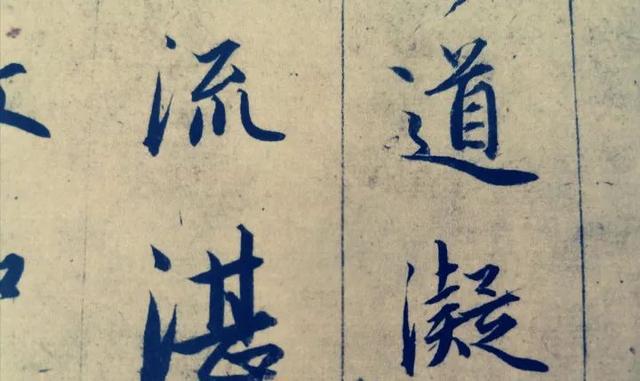 道凝
流湛